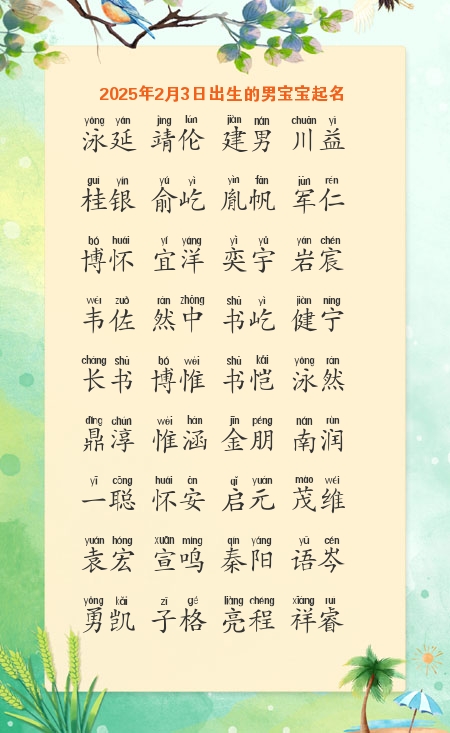 2025年2月3日出生的男宝宝起名
yǒng yán jìng lún jiàn nán chuān yì
泳延 靖伦 建男 川益
guì yín yú yì yìn fān jūn rén
桂银 俞屹 胤帆 军仁
bó huái yí yáng yì yǔ yán chén
博怀 宜洋 奕宇 岩宸
wéi zuǒ rán zhōng shū yì jiàn níng
韦佐 然中 书屹 健宁
cháng shū bó wéi shū kǎi yǒng rán
长书 博惟 书恺 泳然
dǐng chún wéi hán jīn péng nán rùn
鼎淳 惟涵 金朋 南润
yī cōng huái ān qǐ yuán mào wéi
一聪 怀安 启元 茂维
yuán hóng xuān míng qín yáng yǔ cén
袁宏 宣鸣 秦阳 语岑
yǒng kǎi zǐ gé liàng chéng xiáng ruì
勇凯 子格 亮程 祥睿